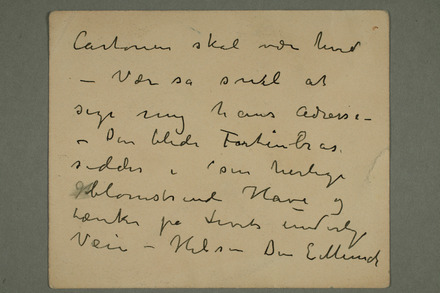 Cartonen skal være hvid
– Vær så snil at
sige mig hans Adresse –
– Den blide Fortinbras.
sidder i sin herlige
blomstrende Have og
tænker på Livets underlige
Veie – Hilsen Din E Munch